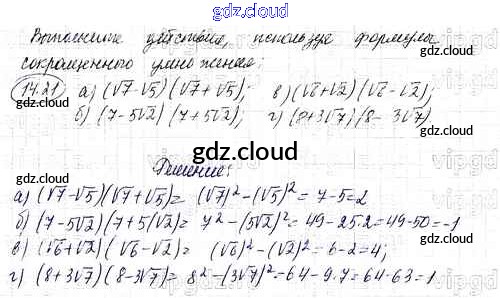 gdz.cloud
Выполните действия, используя формулы
сокращенного умножения:
14.21 а) (√7-√5)(√7+√5); в) (√6+√2)(√6-√2);
б) (7-5√2)(7+5√2); г) (8+3√7)(8-3√7)
gdz.cloud
Решение:
gdz.cloud
а) (√7-√5)(√7+√5)= (√7)²-(√5)²=7-5=2
б) (7-5√2)(7+5(√2)= 7²-(5√2)²=49-25·2=49-50=-1
в) (√6+√2)(√6-√2)= (√6)²-(√2)²=6-2=4;
г) (8+3√7)(8-3√7)= 8²-(3√7)²=64-9·7=64-63=1
gdz.cloud